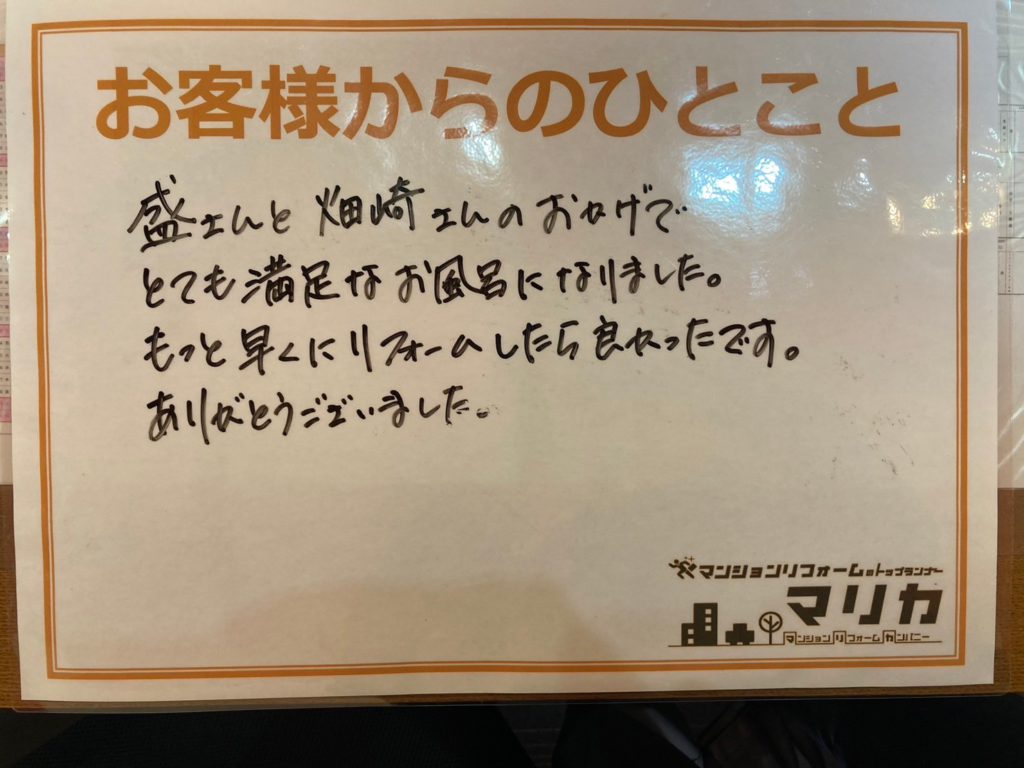 お客様からのひとこと
盛さんと畑崎さんのおかげで
とても満足なお風呂になりました。
もっと早くにリフォームしたら良かったです。
ありがとうございました。
マンションリフォームのトップランナー
マリカ
マンションリフォームカンパニー